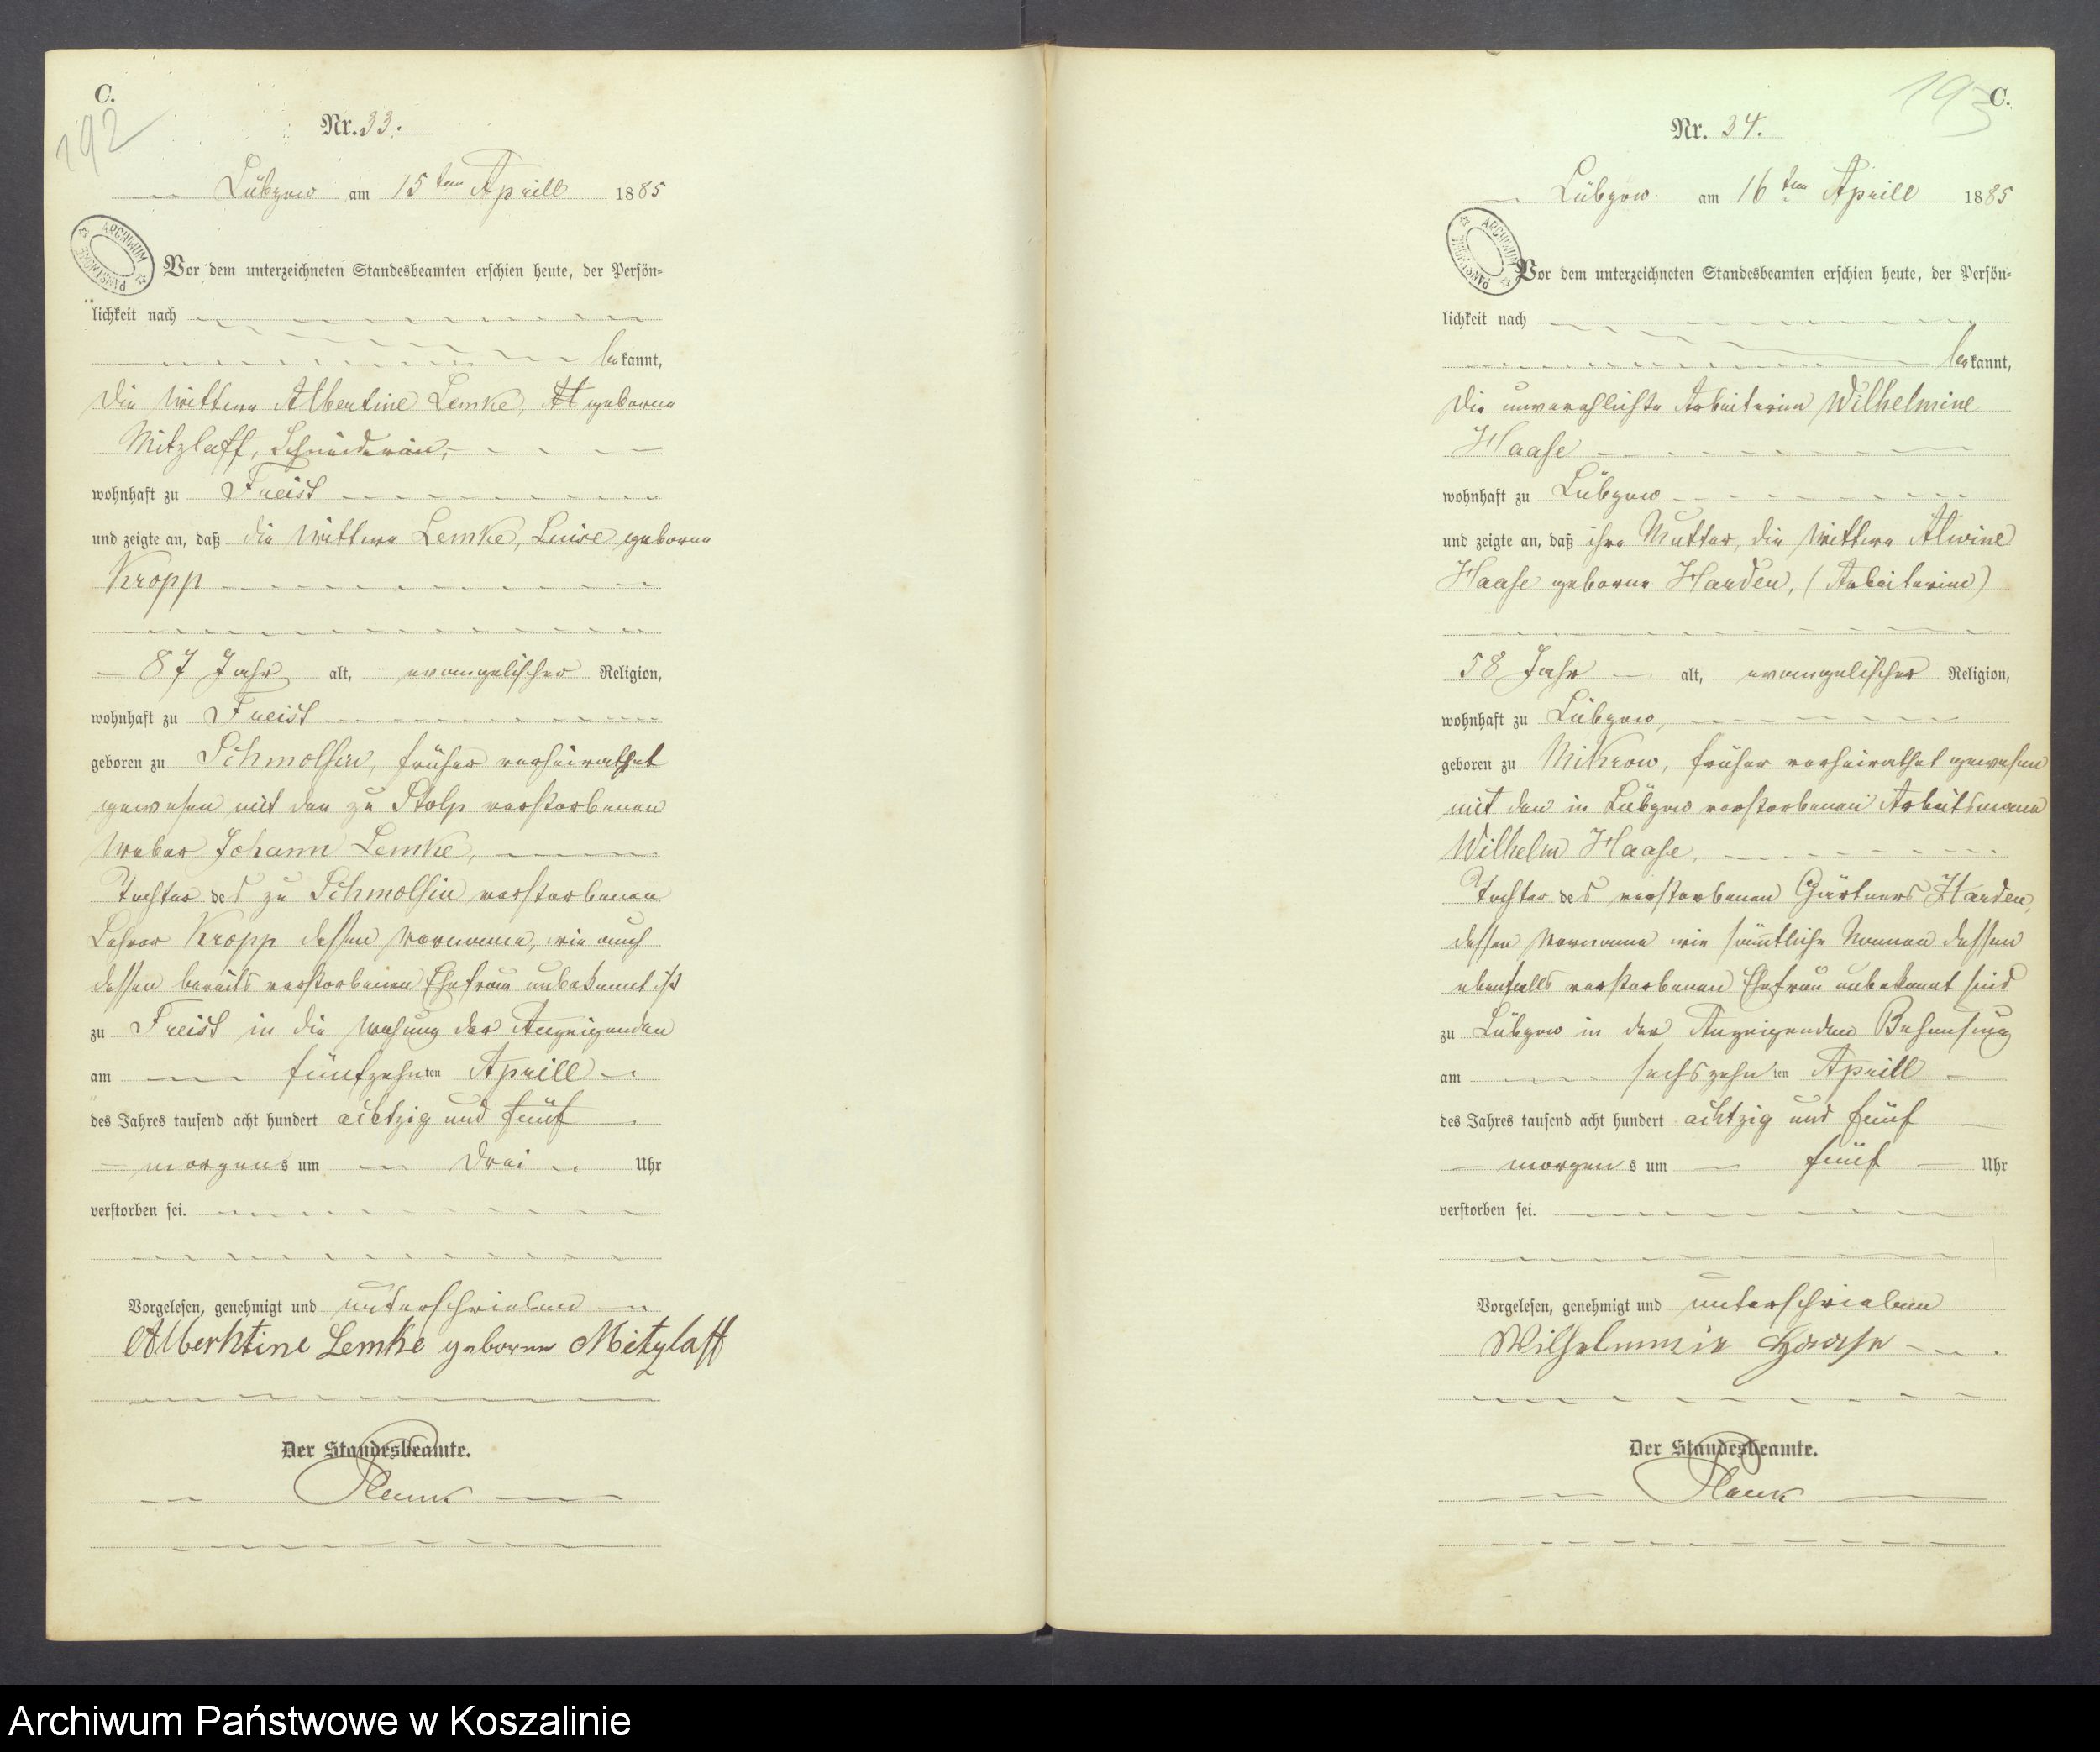 C.
192
Nr. 33.
Lübzow am 15ten Aprill 1885
ARCHIWUM PAŃSTWOWE
Vor dem unterzeichneten Standesbeamten erschien heute, der Persön-
lichkeit nach
bekannt,
die Wittwe Albertine Lemke, geborne
Mitzlaff, Schneiderin,
wohnhaft zu Freist
und zeigte an, daß die Wittwe Lemke, Luise geborne
Kropp
87 Jahr alt, evangelischer Religion,
wohnhaft zu Freist
geboren zu Schmolsin, früher verheirathet
gewesen mit den zu Stolp verstorbenen
Weber Johann Lemke,
Tochter des zu Schmolsin verstorbenen
Lehrer Kropp dessen Vorname, wie auch
dessen bereits verstorbenen Ehefrau unbekannt ist
zu Freist in die Wohnung der Anzeigenden
am fünfzehnten Aprill
des Jahres tausend acht hundert achtzig und fünf
morgens um drei Uhr
verstorben sei.
Vorgelesen, genehmigt und unterschrieben
Alberhtine Lemke geboren Mitzlaff
Der Standesbeamte.
C.
193
Nr. 34.
Lübzow am 16ten Aprill 1885
ARCHIWUM PAŃSTWOWE
Vor dem unterzeichneten Standesbeamten erschien heute, der Persön-
lichkeit nach
bekannt,
die unverehlichte Arbeiterin Wilhelmine
Haase
wohnhaft zu Lübzow
und zeigte an, daß ihre Mutter, die Wittwe Alwine
Haase geborne Harden, (Arbeiterin)
58 Jahr alt, evangelischer Religion,
wohnhaft zu Lübzow,
geboren zu Mikrow, früher verheirathet gewesen
mit den in Lübzow verstorbenen Arbeitsmann
Wilhelm Haase,
Tochter des verstorbenen Gärtners Harden,
dessen Vorname wie sämtliche Namen dessen
ebenfalls verstorbenen Ehefrau unbekannt sind
zu Lübzow in der Anzeigenden Behausung
am sechszehnten Aprill
des Jahres tausend acht hundert achtzig und fünf
morgens um fünf Uhr
verstorben sei.
Vorgelesen, genehmigt und unterschrieben
Haase
Der Standesbeamte.
Archiwum Państwowe w Koszalinie